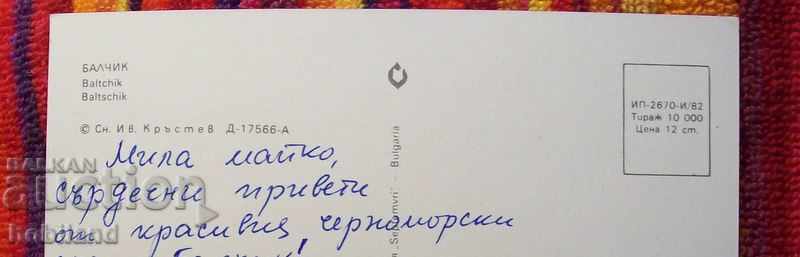 БАЛЧИК
Baltchik
Baltschik
© Сн. Ив. Кръстев Д-17566-А
ИП-2670-И/82
Тираж 10 000
Цена 12 ст.
Bulgaria
Мила майко,
сърдечни привети
от красивия черноморски
BALKAN
auction
hobiland